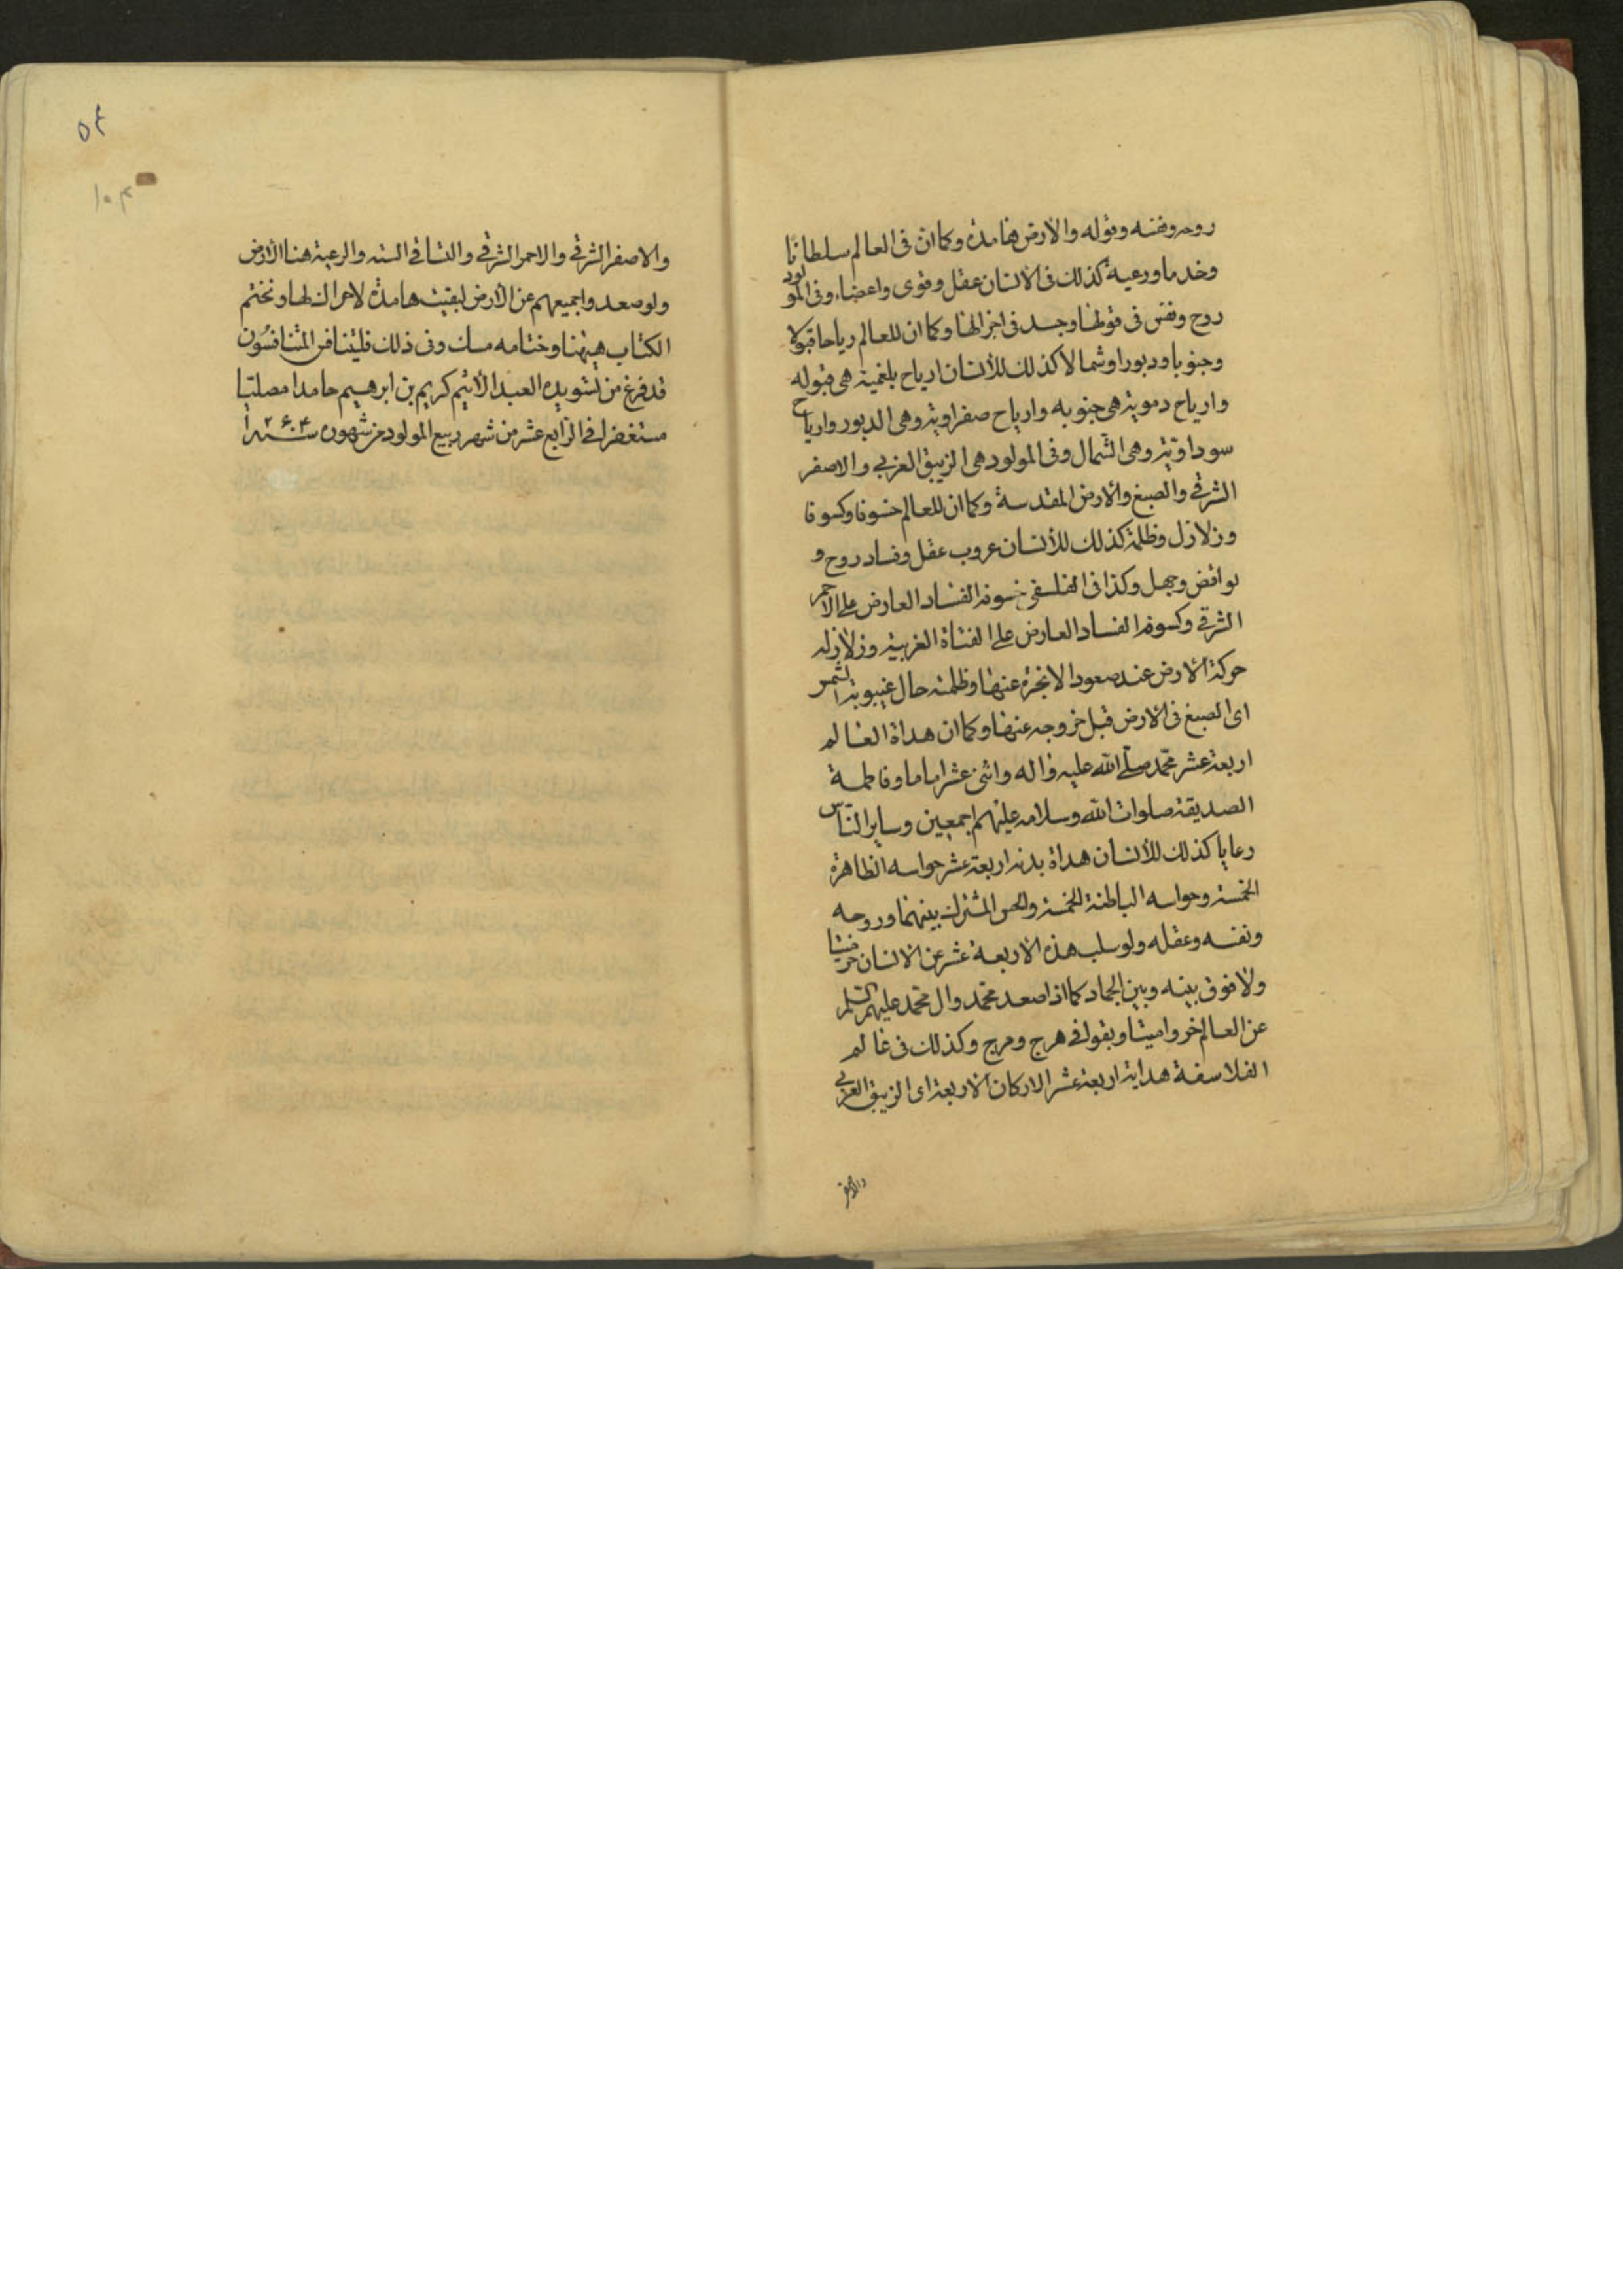 روحه ونفسه وقوله والارض هامدة وكما ان فى العالم سلطانا
وخدما ورعية كذلك فى الانسان عقل وقوى واعضاء وفى المولود
روح ونفس فى قولنا وجسد فى اخر الهنا وكما ان للعالم رياحا قبولا
وجنوبا ودبورا وشمالا كذلك للانسان ارياح بلغمية هى قبوله
وارياح دموية هى جنوبه وارياح صفراوية وهى الدبور وارياح
سوداوية وهى الشمال وفى المولود هى الزيبق الغربي والاصفر
الشرقي والصبغ والارض المقدسة وكما ان للعالم خسوفا وكسوفا
وزلازل وظلمة كذلك للانسان عروب عقل وفساد روح و
نوافض وجهل وكذا فى الفلسفى خسوفه الفساد العارض على الاحمر
الشرقي وكسوفه الفساد العارض على الفتاة الغربية وزلازله
حركة الارض عند صعود الابخرة عنها وظلمته حال غيبوبة الشمس
اى الصبغ فى الارض قبل خروجه عنها وكما ان هداة العالم
اربعة عشر محمد صلى الله عليه واله واثنى عشر اماما وفاطمة
الصديقة صلوات الله وسلامه عليهم اجمعين وساير الناس
رعايا كذلك للانسان هداة بدنه اربعة عشر حواسه الظاهرة
الخمسة وحواسه الباطنة الخمسة والحس المشترك بينهما وروحه
ونفسه وعقله ولو سلب هذه الاربعة عشر عن الانسان خر ميتا
ولا فرق بينه وبين الجماد كما اذا صعد محمد وال محمد عليهم السلم
عن العالم خروا ميتا وبقوا في هرج ومرج وكذلك فى عالم
الفلاسفة هداية اربعة عشر الاركان الاربعة اى الزيبق الغربي
والاصفر
۵۴
۱۰۳
والاصفر الشرقي والاحمر الشرقي والتساقي الستة والرعية هنا الارض
ولو صعدوا جميعهم عن الارض لبقيت هامدة لاحراك لها ونختم
الكتاب هيهنا وختامه مسك وفى ذلك فليتنافس المتنافسون
قد فرغ من تسويده العبد الاثيم كريم بن ابرهيم حامدا مصليا
مستغفرا فى الرابع عشر من شهر ربيع المولود من شهور سنة ۱۲۶۴